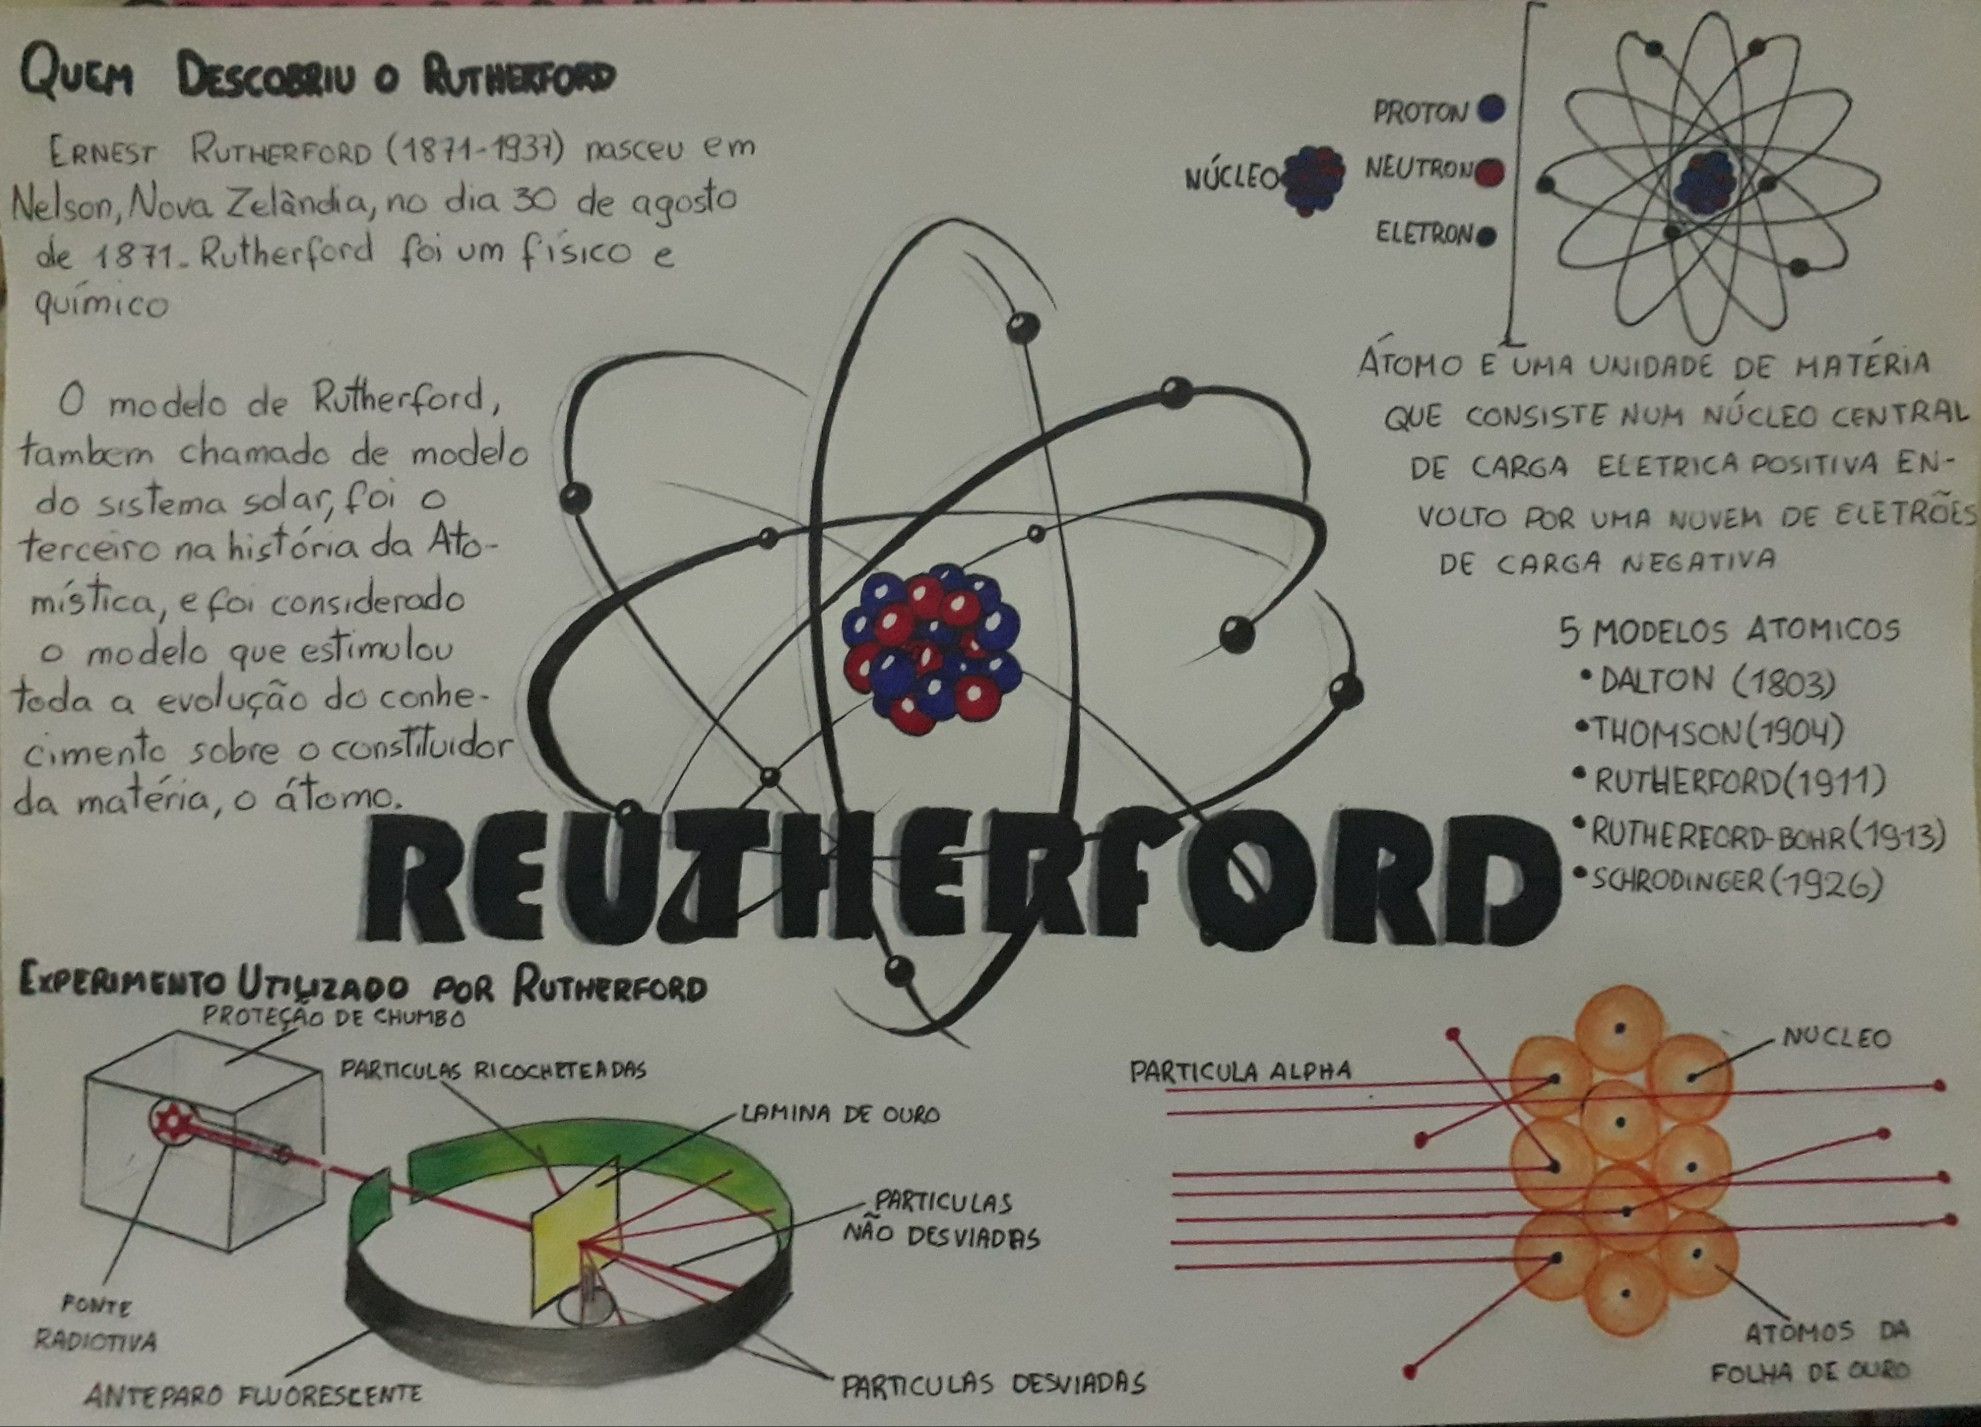 QUEM DESCOBRIU O RUTHERFORD
ERNEST RUTHERFORD (1871-1937) nasceu em
Nelson, Nova Zelàndia, no dia 30 de agosto
de 1871. Rutherford foi um físico e
químico
O modelo de Rutherford,
tambem chamado de modelo
do sistema solar, foi o
terceiro na história da Ato-
mística, e foi considerado
o modelo que estimulou
toda a evolução do conhe-
cimento sobre o constituidor
da matéria, o átomo.
NÚCLEO
PROTON
NEUTRON
ELETRON
ÁTOMO É UMA UNIDADE DE MATÉRIA
QUE CONSISTE NUM NÚCLEO CENTRAL
DE CARGA ELETRICA POSITIVA EN-
VOLTO POR UMA NUVEM DE ELETRÕES
DE CARGA NEGATIVA
5 MODELOS ATOMICOS
• DALTON (1803)
• THOMSON (1904)
• RUTHERFORD (1911)
• RUTHERFORD-BOHR (1913)
• SCHRODINGER (1926)
REUTHERFORD
EXPERIMENTO UTILIZADO POR RUTHERFORD
PROTEÇÃO DE CHUMBO
PARTICULAS RICOCHETEADAS
LAMINA DE OURO
PARTICULAS
NÃO DESVIADAS
FONTE
RADIOTIVA
ANTEPARO FLUORESCENTE
PARTICULAS DESVIADAS
PARTICULA ALPHA
NUCLEO
ATOMOS DA
FOLHA DE OURO